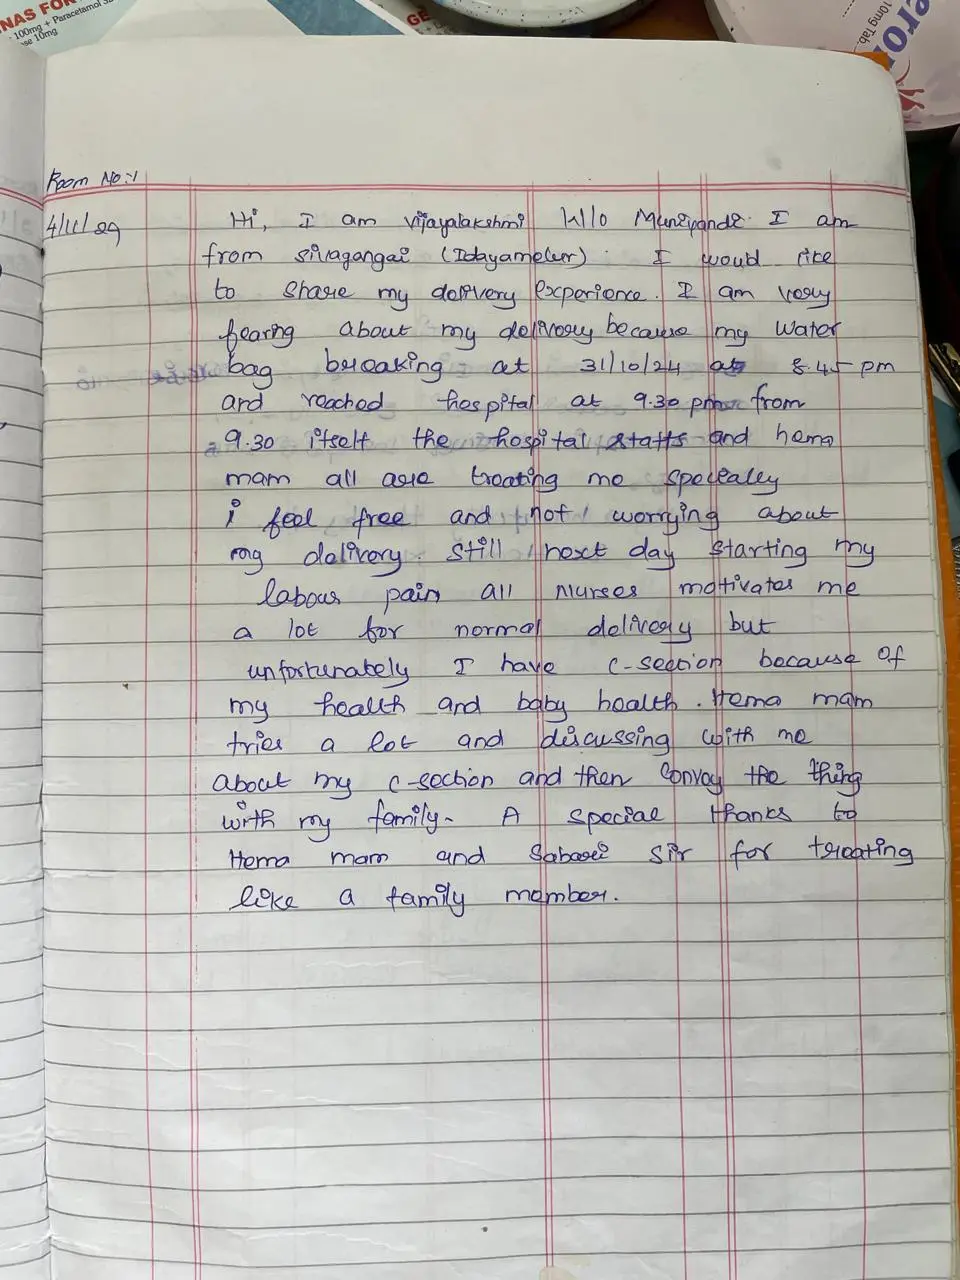 NAS FOR
100mg + Paracetamol 3
se 10mg
GE
10mg Tab.
Room No:1
4/11/24
Hi, I am Vijayalakshmi W/o Muniyandi. I am
from sivagangai (Idayamelur). I woud like
to share my delivery experience. I am very
fearing about my delivery because my water
bag breaking at 31/10/24 at 8.45 pm
and reached hospital at 9.30 pm from
9.30 itself the hospital staffs and hema
mam all are treating me specealy
i feel free and not worrying about
my delivery. still next day starting my
labour pain all nurses motivates me
a lot for normal delivery but
unfortunately I have c-section because of
my health and baby health. Hema mam
tries a lot and discussing with me
about my c-section and then convey the thing
with my family. A special thanks to
Hema mam and Sabari sir for treating
like a family member.